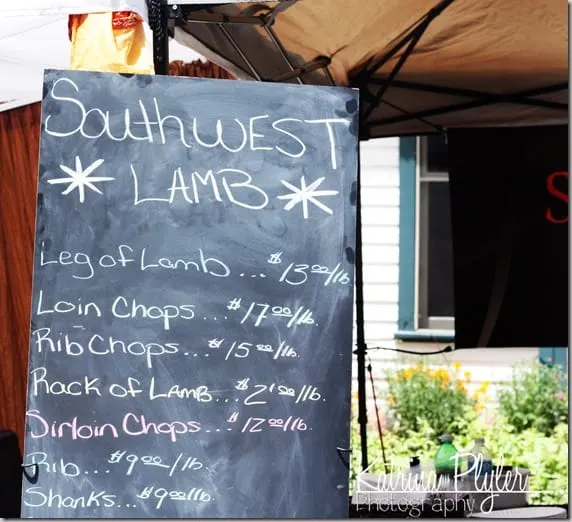 SouthWEST
LAMB
Leg of Lamb... $13.00/lb
Loin Chops... $17.00/lb.
Rib Chops... $15.00/lb.
Rack of Lamb... $21.00/lb.
Sirloin Chops... $12.00/lb.
Rib... $9.00/lb.
Shanks... $9.00/lb.
S
Katrina Plyler
Photography